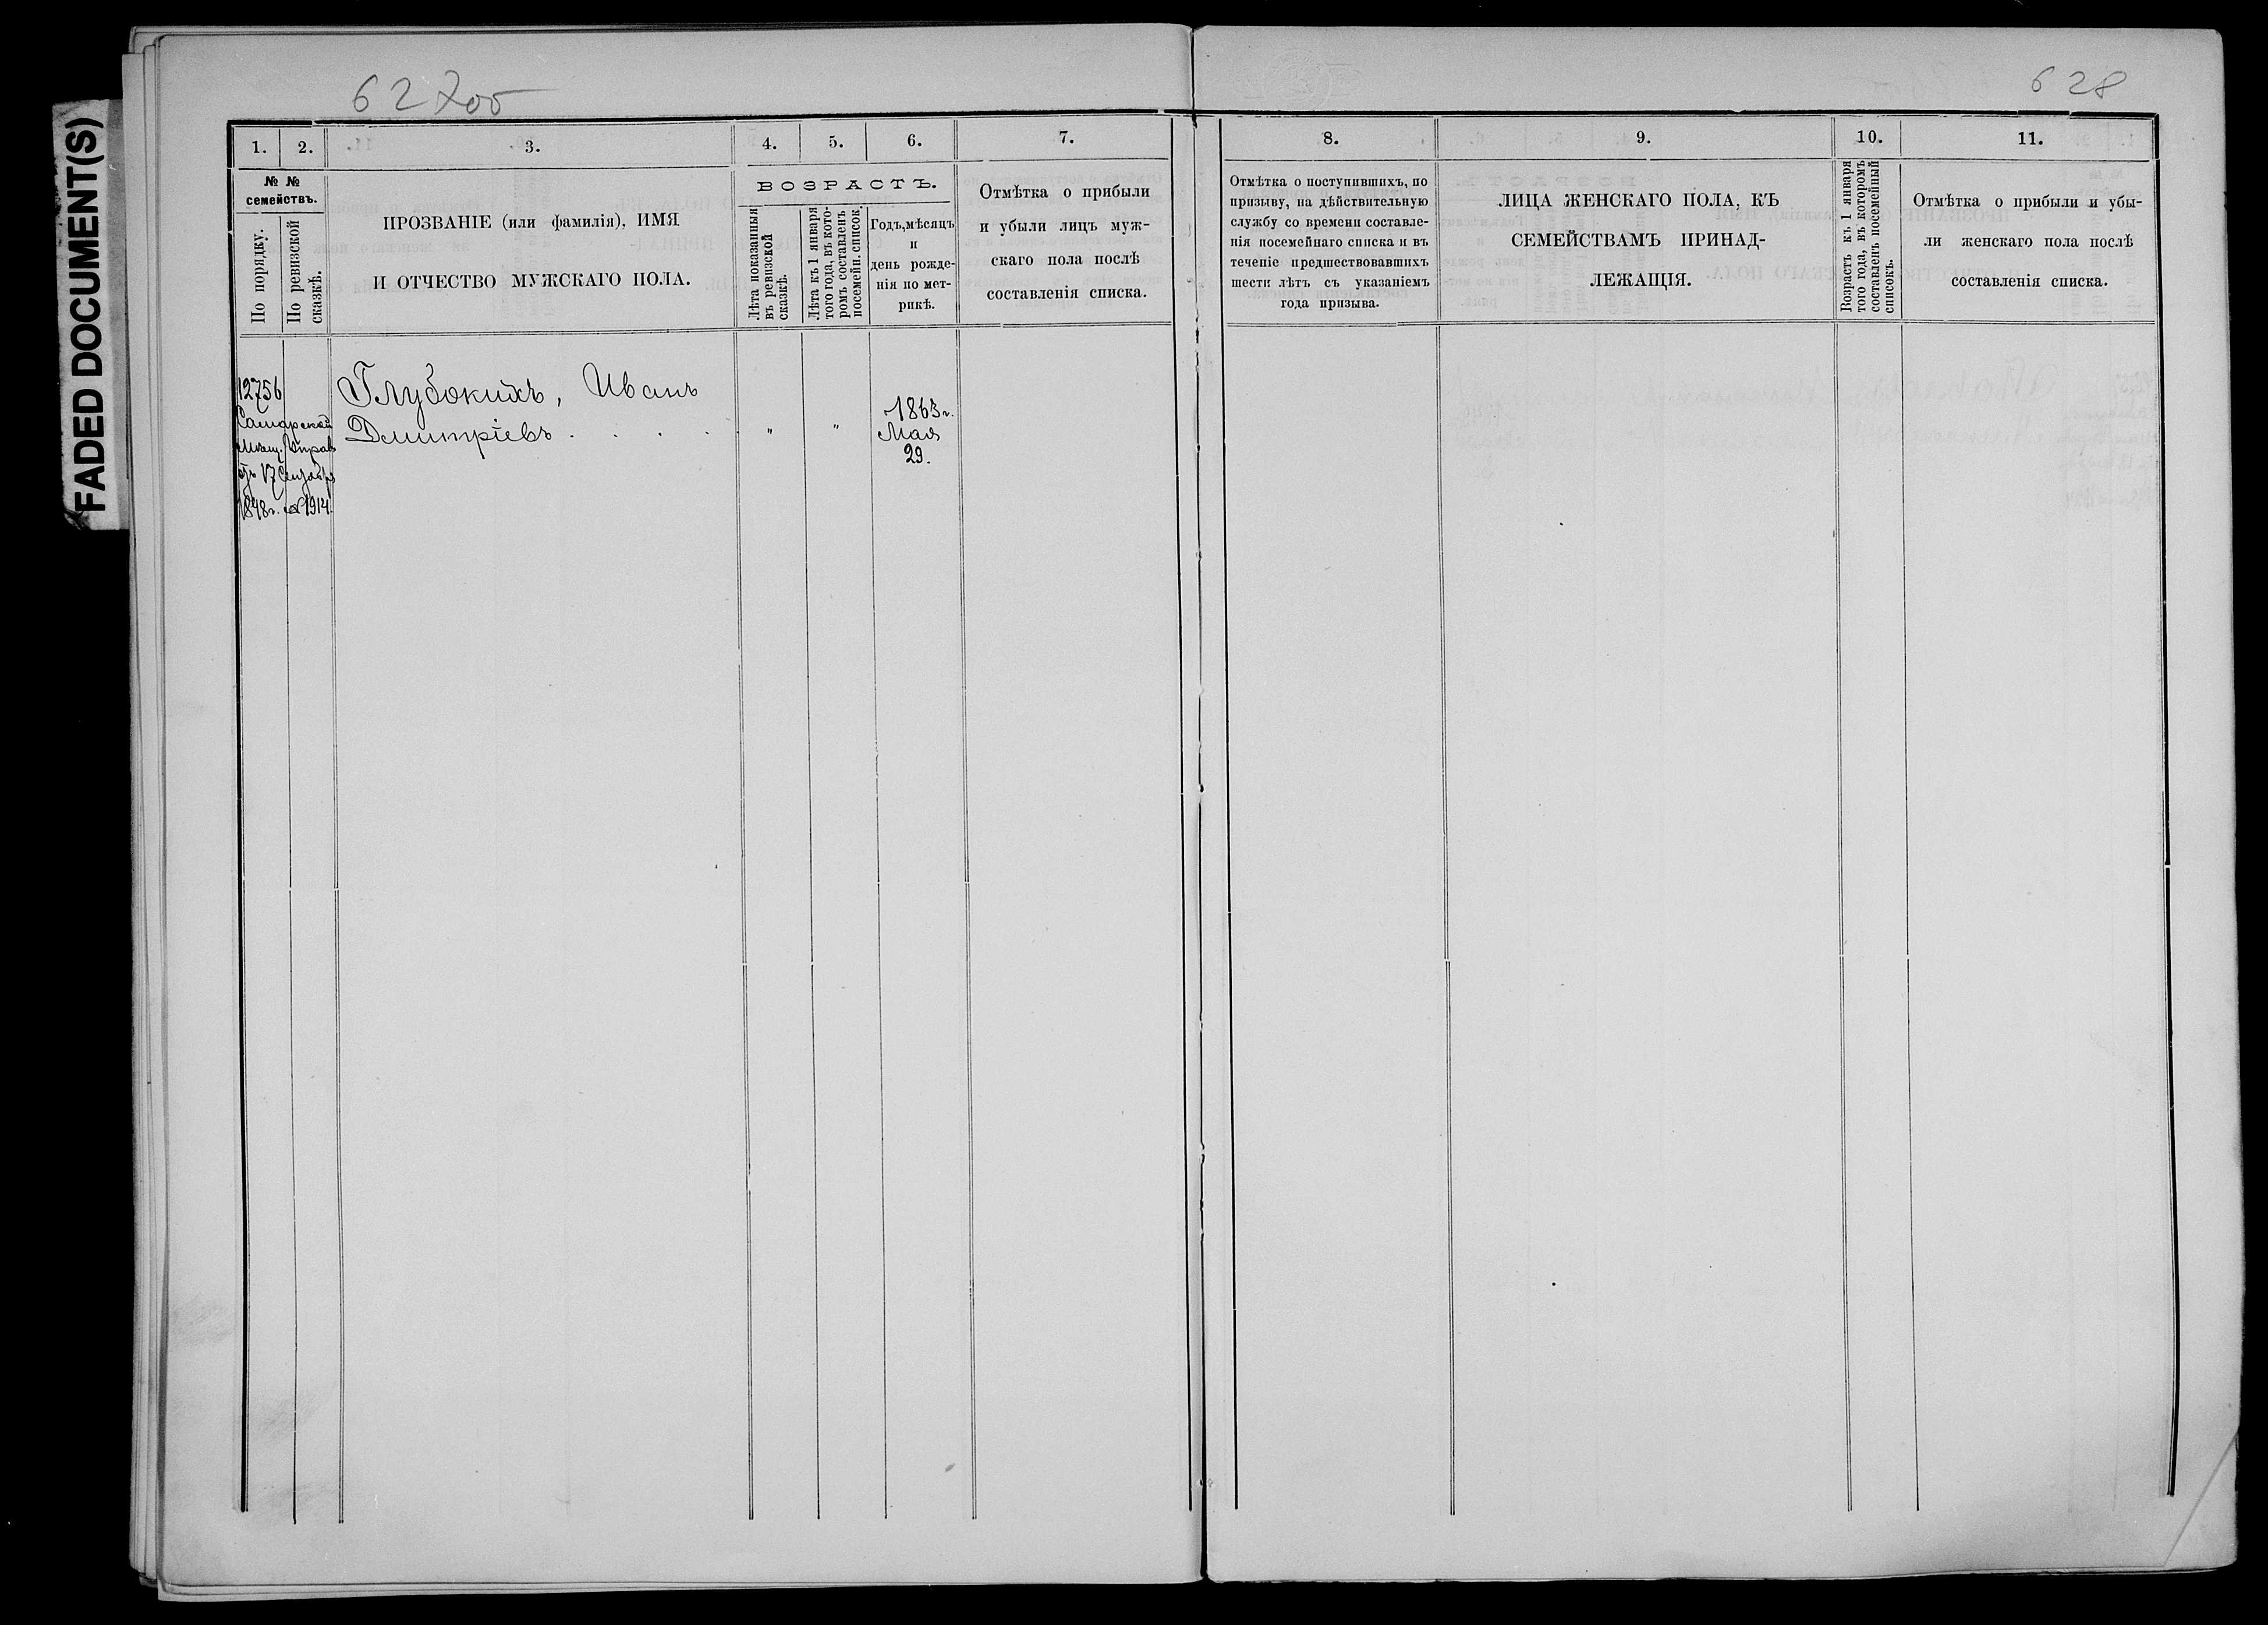 FADED DOCUMENT(S)
62 700
628
1. 2. 3. 4. 5. 6. 7.
№ № семействъ.
По порядку.
По ревизской сказкѣ.
ПРОЗВАНІЕ (или фамилія), ИМЯ
И ОТЧЕСТВО МУЖСКАГО ПОЛА.
ВОЗРАСТЪ.
Лѣта показанныя
въ ревизской
сказкѣ.
Лѣта къ 1 января
того года, въ кото-
ромъ составленъ
посемейн. список.
Годъ, мѣсяцъ
и
день рожде-
нія по мет-
рикѣ.
Отмѣтка о прибыли
и убыли лицъ муж-
скаго пола послѣ
составленія списка.
8. 9. 10. 11.
Отмѣтка о поступившихъ, по
призыву, на дѣйствительную
службу со времени составле-
нія посемейнаго списка и въ
теченіе предшествовавшихъ
шести лѣтъ съ указаніемъ
года призыва.
ЛИЦА ЖЕНСКАГО ПОЛА, КЪ
СЕМЕЙСТВАМЪ ПРИНАД-
ЛЕЖАЩІЯ.
Возрастъ къ 1 января
того года, въ которомъ
составленъ посемейный
списокъ.
Отмѣтка о прибыли и убы-
ли женскаго пола послѣ
составленія списка.
12756
Самарской
Мѣщ. Управ
отъ 17 Сентября
№ 1914.
Глубокихъ, Иванъ
Дмитріевъ . . . . " "
1863 г.
Мая
29.